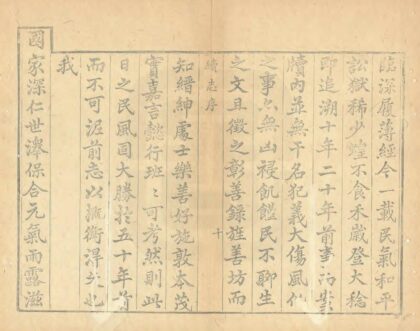 臨深履薄經今一載民氣和平
訟獄稀少蝗不食禾歲登大稔
即追溯十年二十年前事訪案
牘內並無干名犯義大傷風化
之事亦無凶祲飢饉民不聊生
之文且徵之彰善錄旌善坊而
續志序
十
知縉紳處士樂善好施敦本茂
實嘉言懿行班班可考然則此
日之民風固大勝於五十年前
而不可泥前志以概衡得失也
我
國家深仁世澤保合元氣雨露滋